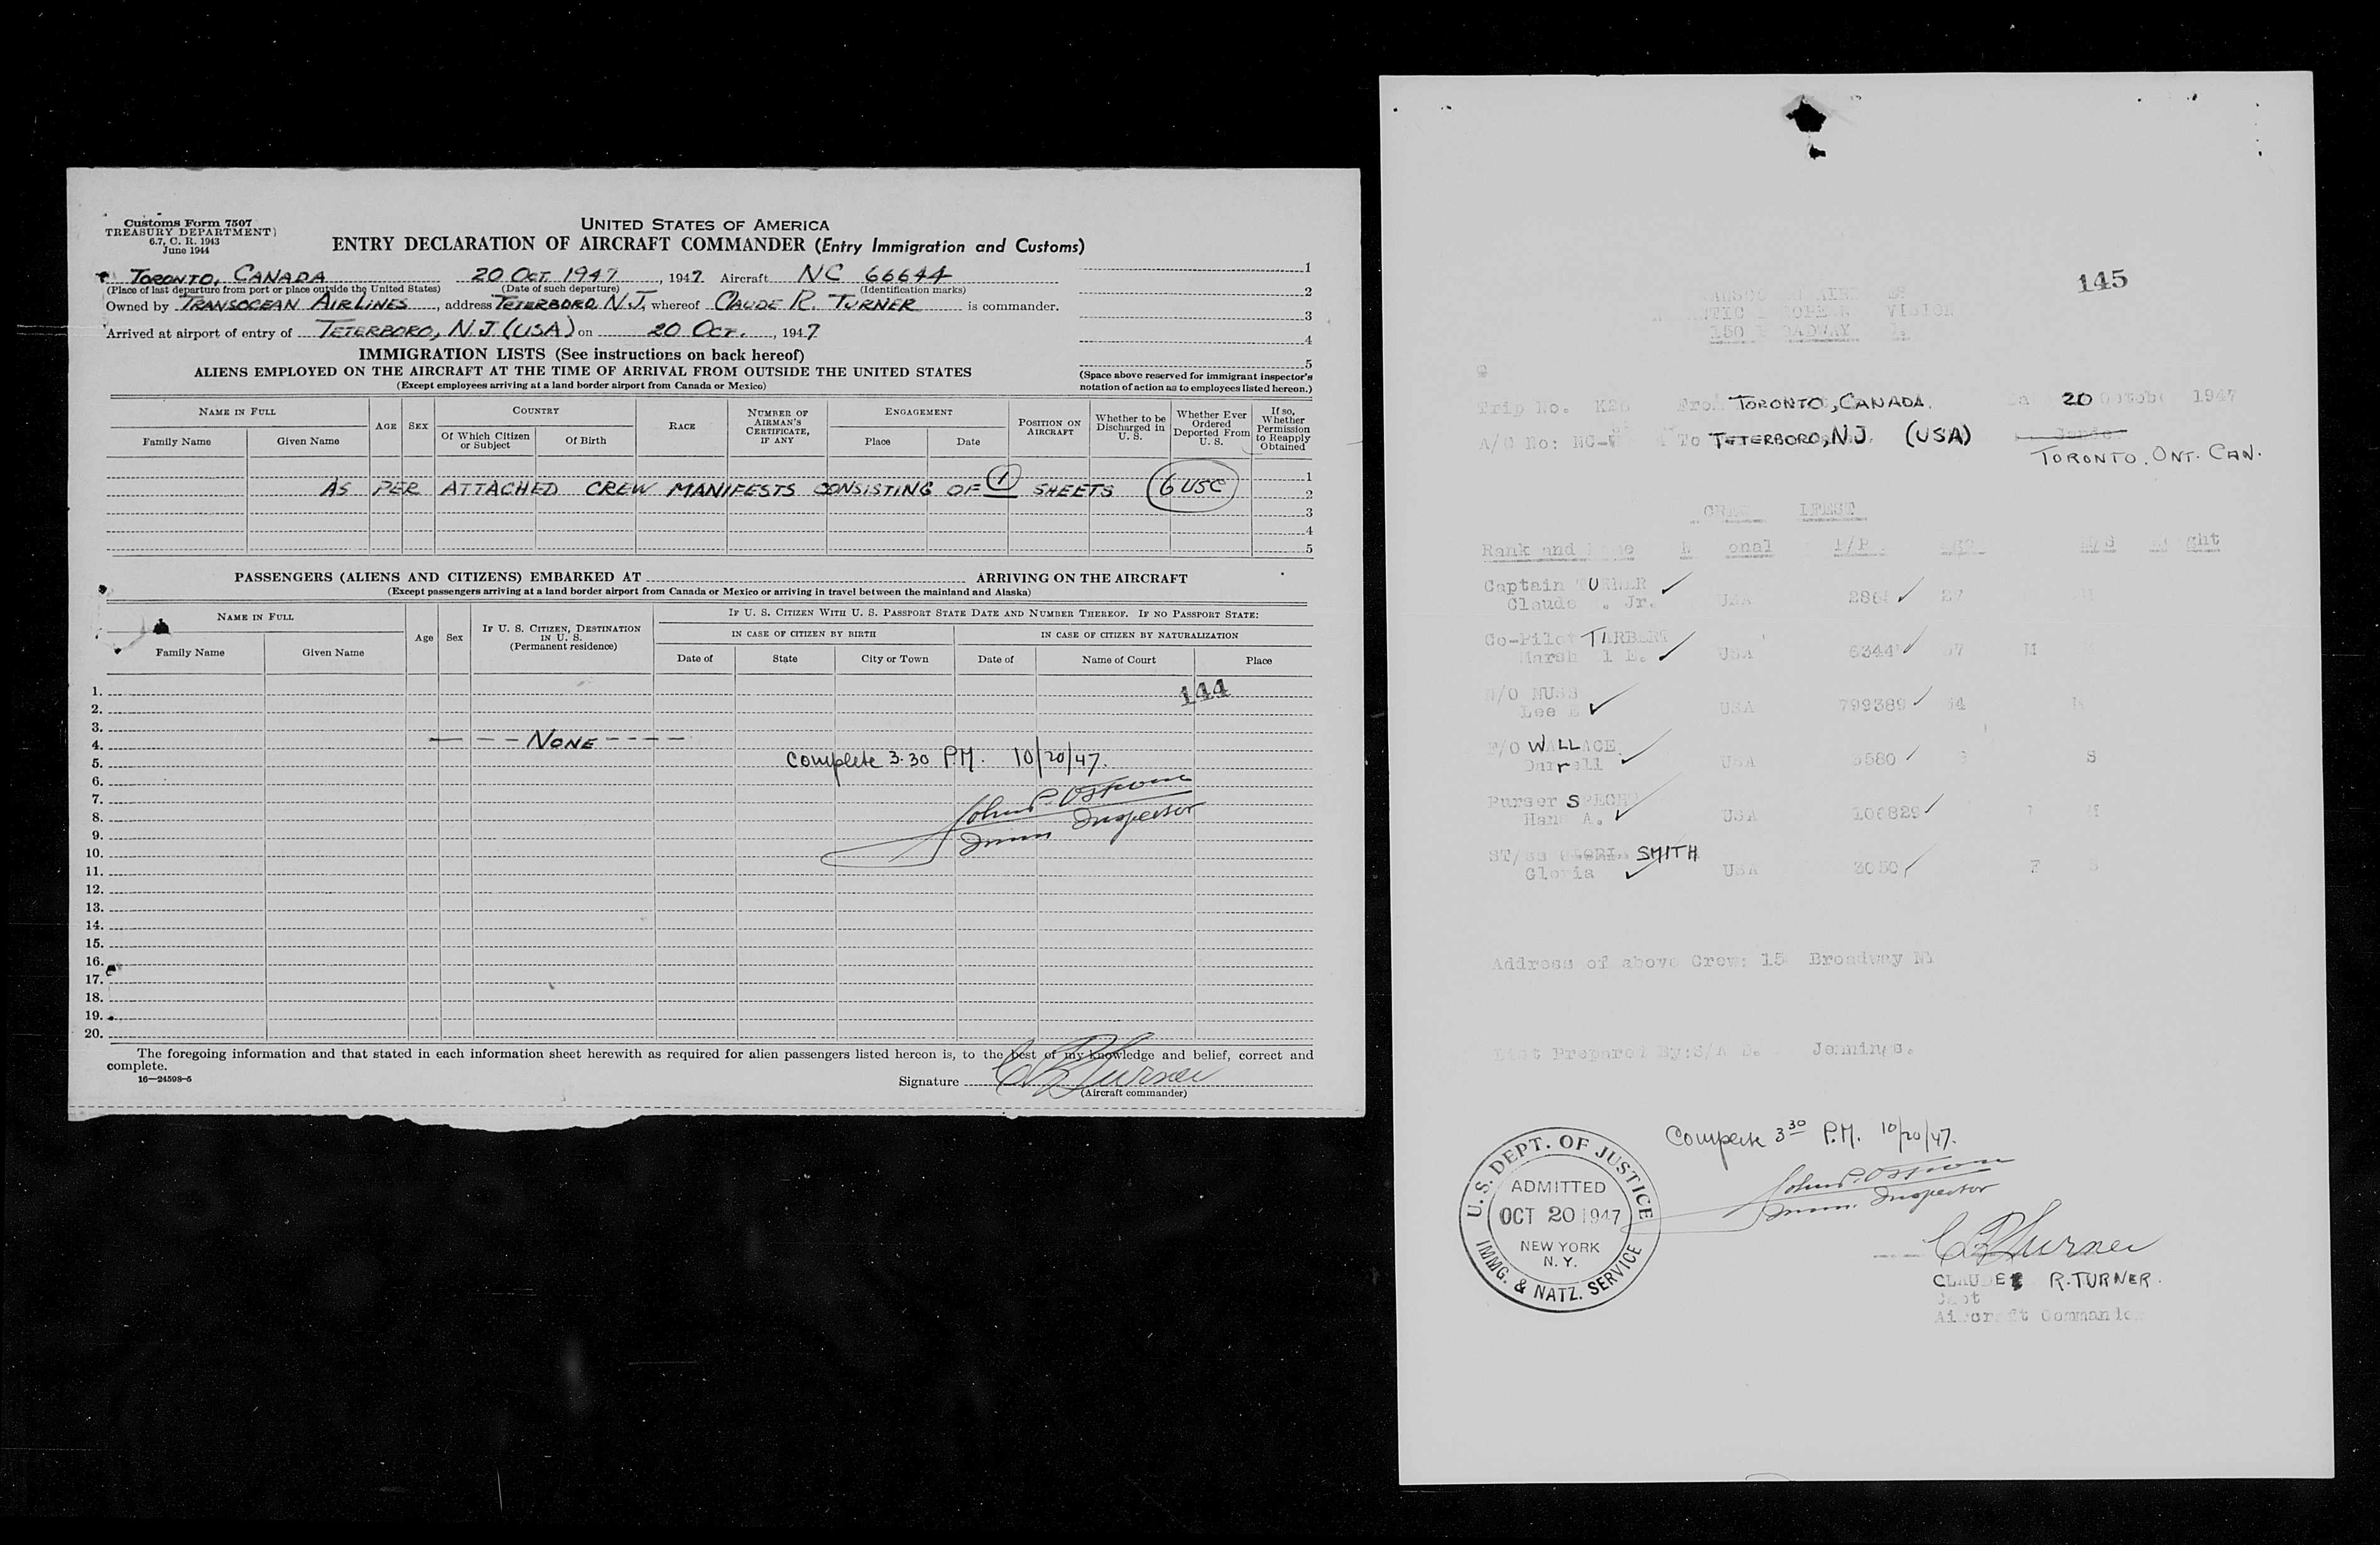 Customs Form 7507
TREASURY DEPARTMENT
6.7, C. R. 1943
June 1944
UNITED STATES OF AMERICA
ENTRY DECLARATION OF AIRCRAFT COMMANDER (Entry Immigration and Customs)
TORONTO, CANADA 20 OCT. 1947, 1947 Aircraft NC 66644
(Place of last departure from port or place outside the United States) (Date of such departure) (Identification marks)
Owned by TRANSOCEAN AIRLINES, address TETERBORO N.J., whereof CLAUDE R. TURNER is commander.
Arrived at airport of entry of TETERBORO, N.J (USA) on 20 OCT., 1947
1
2
3
4
5
(Space above reserved for immigrant inspector's
notation of action as to employees listed hereon.)
IMMIGRATION LISTS (See instructions on back hereof)
ALIENS EMPLOYED ON THE AIRCRAFT AT THE TIME OF ARRIVAL FROM OUTSIDE THE UNITED STATES
(Except employees arriving at a land border airport from Canada or Mexico)
NAME IN FULL
Family Name
Given Name
AGE
SEX
COUNTRY
Of Which Citizen or Subject
Of Birth
RACE
NUMBER OF AIRMAN'S CERTIFICATE, IF ANY
ENGAGEMENT
Place
Date
POSITION ON AIRCRAFT
Whether to be Discharged in U. S.
Whether Ever Ordered Deported From U. S.
If so, Whether Permission to Reapply Obtained
1
AS PER ATTACHED CREW MANIFESTS CONSISTING OF 1 SHEETS 6 USC 2
3
4
5
PASSENGERS (ALIENS AND CITIZENS) EMBARKED AT ARRIVING ON THE AIRCRAFT
(Except passengers arriving at a land border airport from Canada or Mexico or arriving in travel between the mainland and Alaska)
NAME IN FULL
Family Name
Given Name
Age
Sex
IF U. S. CITIZEN, DESTINATION IN U. S.
(Permanent residence)
IF U. S. CITIZEN WITH U. S. PASSPORT STATE DATE AND NUMBER THEREOF. IF NO PASSPORT STATE:
IN CASE OF CITIZEN BY BIRTH
IN CASE OF CITIZEN BY NATURALIZATION
Date of
State
City or Town
Date of
Name of Court
Place
1. 144
2.
3.
4. NONE
5. Complete 3.30 P.M. 10/20/47.
6.
7. John P.
8. Imm Inspector
9.
10.
11.
12.
13.
14.
15.
16.
17.
18.
19.
20.
The foregoing information and that stated in each information sheet herewith as required for alien passengers listed hereon is, to the best of my knowledge and belief, correct and
complete.
16—24598-5
Signature C R Turner
(Aircraft commander)
145
Trip No. From TORONTO, CANADA. 20 1947
A/C No: To TETERBORO, N.J. (USA)
TORONTO. ONT. CAN.
Rank and
Captain TURNER
Claude Jr. USA
Co-Pilot TARBERT
USA M
Lee USA 799389
WALLACE
Darrell USA S
Purser
A. USA 106829
SMITH
Gloria USA F S
Address of above Crew: Broadway NY
Prepared By: Jennings.
Complete 3 30 P.M. 10/20/47.
John P.
Imm. Inspector
U.S. DEPT. OF JUSTICE
ADMITTED
OCT 20 1947
NEW YORK
N. Y.
IMMG. & NATZ. SERVICE
C R Turner
CLAUDE R. TURNER.
Capt
Aircraft Commander